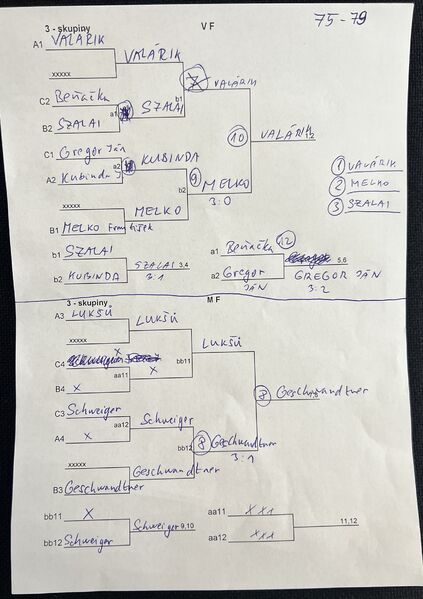 75-79
3 - skupiny V F
A1 VALÁRIK
VALÁRIK
xxxxx
7 VALÁRIK
C2 Beňačka
a1 SZALAI b1
B2 SZALAI
10 VALÁRIK 1,2
C1 Gregor Ján
a2 KUBINDA
A2 Kubinda J.
9 MELKO
b2 3:0
xxxxx
MELKO
B1 MELKO František
1 VALÁRIK
2 MELKO
3 SZALAI
b1 SZALAI
SZALAI 3,4
3:1
b2 KUBINDA
a1 Beňačka 12
5,6
GREGOR JÁN
3:2
a2 Gregor
JÁN
3 - skupiny M F
A3 LUKŠŮ
LUKŠŮ
xxxxx
LUKŠŮ
C4 x
aa11 x bb11
B4 x
8 Geschwandtner
C3 Schweiger
aa12 Schweiger
A4 x
bb12 8 Geschwandtner
3:1
xxxxx
Geschwandtner
B3 Geschwandtner
bb11 x
Schweiger 9,10
bb12 Schweiger
aa11 x x x
11,12
aa12 x x x